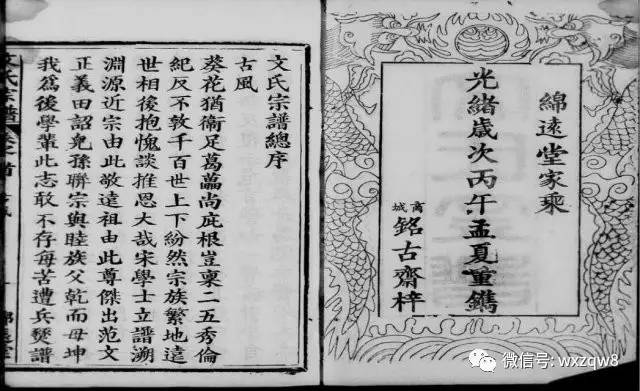 綿遠堂家乘
光緒歲次丙午孟夏重鐫
商城
銘古齋梓
文氏宗譜總序
古風
葵花猶衛足葛藟尚庇根豈稟二五秀倫
紀反不敦千百世上下紛然宗族繁地遠
世相後抱愧談推恩大哉宋學士立譜溯
淵源近宗由此敬遠祖由此尊傑出范文
正義田詔兒孫聯宗與睦族父乾而母坤
我為後學輩此志敢不存每苦遭兵燹譜
文氏宗譜
卷之首
微信号: wxzqw8